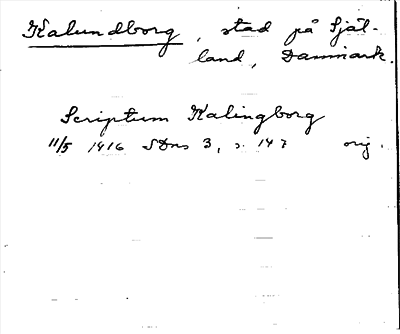 Kalundborg, stad på Själ-
land, Danmark.
Scriptum Kalingborg
11/5 1416 SDns 3, s. 147 orig.